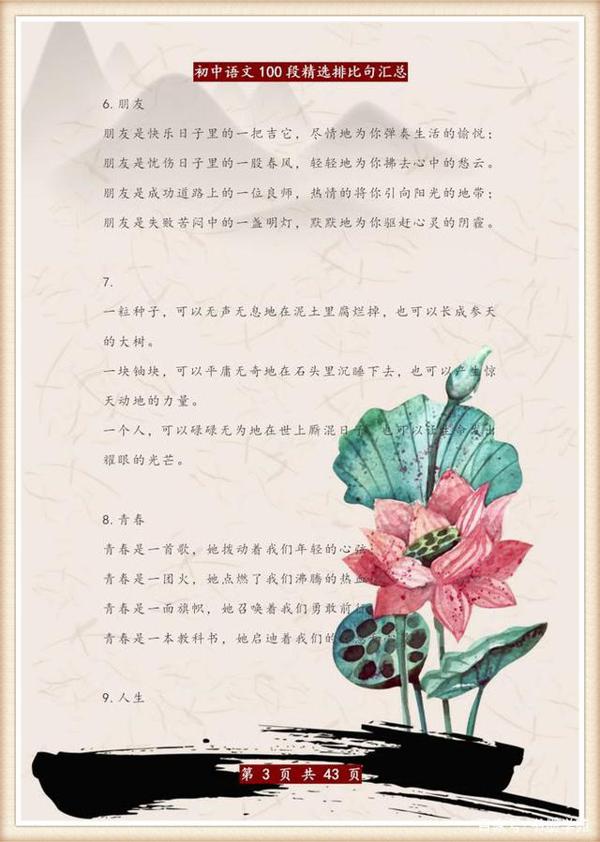 初中语文100段精选排比句汇总
6.朋友
朋友是快乐日子里的一把吉它，尽情地为你弹奏生活的愉悦；
朋友是忧伤日子里的一股春风，轻轻地为你拂去心中的愁云。
朋友是成功道路上的一位良师，热情的将你引向阳光的地带；
朋友是失败苦闷中的一盏明灯，默默地为你驱赶心灵的阴霾。
7.
一粒种子，可以无声无息地在泥土里腐烂掉，也可以长成参天
的大树。
一块铀块，可以平庸无奇地在石头里沉睡下去，也可以产生惊
天动地的力量。
一个人，可以碌碌无为地在世上厮混日子，也可以让生命发出
耀眼的光芒。
8.青春
青春是一首歌，她拨动着我们年轻的心弦；
青春是一团火，她点燃了我们沸腾的热血；
青春是一面旗帜，她召唤着我们勇敢前行；
青春是一本教科书，她启迪着我们的
9.人生
第 3 页 共 43 页